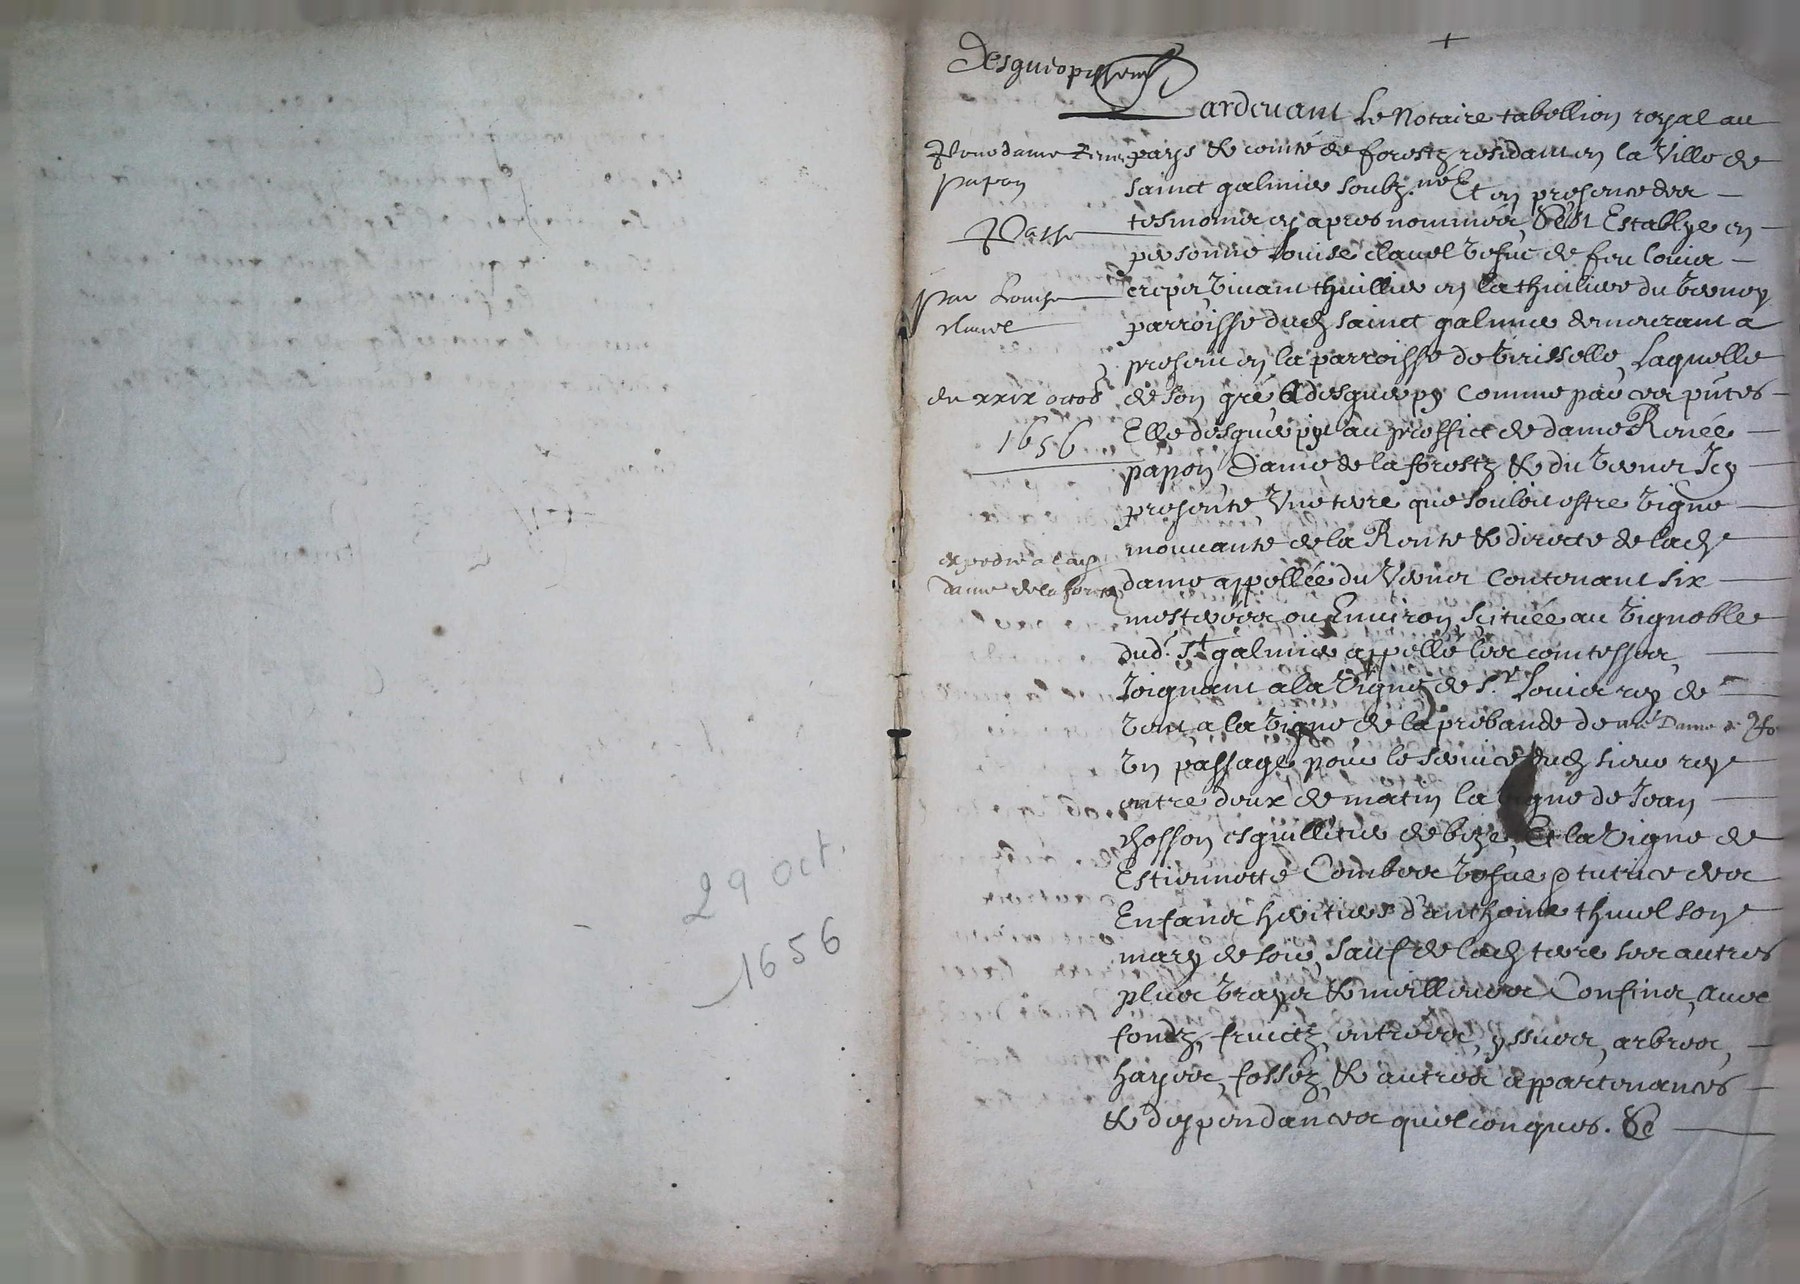 29 oct.
1656
Desguepissem
Pardevant le Notaire tabellion royal au
pays & comté de forestz residant en la ville de
sainct galmier soubz.né Et en presence des
tesmoings cy apres nommés, s'est Establye en
personne Louise clavel vefve de feu Louis
vivant thuillier en la thuiliere du verney
parroisse dud sainct galmier demeurant a
present en la parroisse de Laquelle
de son gré a desguerpy comme par ces pntes
Elle desguerpit au proffict de dame Renée
papon Dame de la forestz & du verney Icy
presente, Une terre que souloit estre vigne
mouvante de la Rente & directe de lad
dame appellée du Verney contenant six
mesterées ou Environ, scituée au vignoble
dud. St galmier appellé les comtesses,
Joignant a la vigne de Sr Louis rey de
vent, a la vigne de la prebande de nre Dame de
Un passage pour le service dud sieur rey
entre deux de matin la vigne de Jean
de bize, Et la vigne de
Estiennette Combes vefve & tutrice des
Enfans heritiers d'anthoine thivel son
mary de soir, sauf de lad terre ses autres
plus vrays & meilleurs Confins, avec
fondz, fruictz, entrées, yssues, arbres,
hayes, fossez, & autres appartenances
& deppendances quelconques. &
Pour dame Renée
papon
Passé
par Louise
clavel
du xxix octob
1656
expedié a lad
dame de la forestz